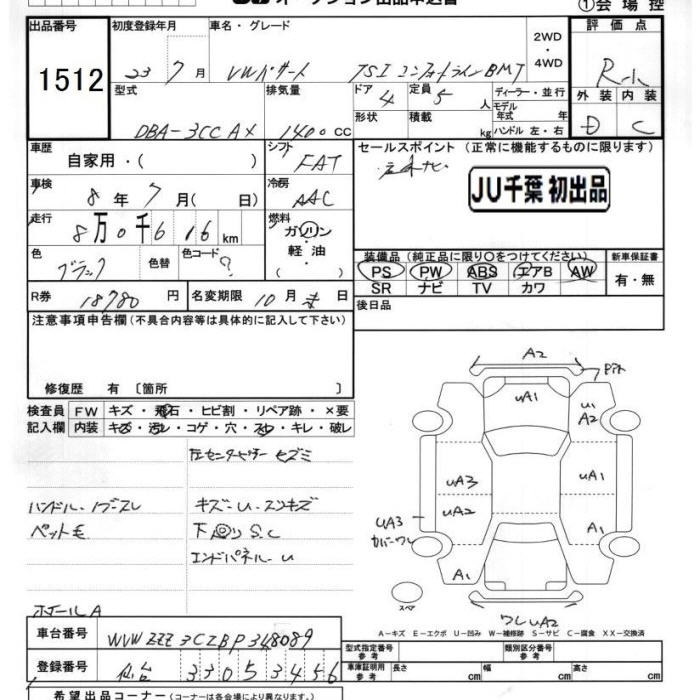 ①会場控
出品番号
1512
初度登録年月 車名・グレード
23 7月 VWパサート TSIコンフォートラインBMT
2WD
・
4WD
評価点
R-小
外装 内装
D C
型式 排気量 ドア 定員 ディーラー・並行
DBA-3CCAX 1400cc 4 5人
形状 積載 kg
モデル年式 年式
ハンドル 左・右
車歴 自家用・( )
シフト FAT
車検 8年7月( 日)
冷房 AAC
走行 8万0千616km
燃料 ガソリン
軽油
・( )
色 ブラック 色替 色コード ?
R券 18780円 名変期限 10月末日
セールスポイント (正常に機能するものに限ります)
JU千葉 初出品
装備品 (純正品に限り○をつけてください) 新車保証書
PS PW ABS エアB AW
SR ナビ TV カワ
有・無
後日品
注意事項申告欄(不具合内容等は具体的に記入して下さい)
修復歴 有 〔箇所 〕
検査員 FW キズ・飛石・ヒビ割・リペア跡・×要
記入欄 内装 キズ・汚レ・コゲ・穴・スレ・キレ・破レ
左センターピラーキズミ
ハンドル・ノブスレ
キズ・U・スリキズ
ペット毛
下回りS.C
エンドパネルU
ホイールA
A2
UA1
U1
A2
UA3
UA2
UA1
A1
UA3
カバーワレ
A1
スペア
ワレUA2
A-キズ E-エクボ U-凹み W-補修跡 S-サビ C-腐食 XX-交換済
車台番号 WVWZZZ3CZBP348089
登録番号 仙台 330 5 3456
型式指定番号 参考 類別区分番号 参考
車庫証明用 参考 長さ cm 幅 cm 高さ cm
希望出品コーナー(コーナーは各会場により異なります)